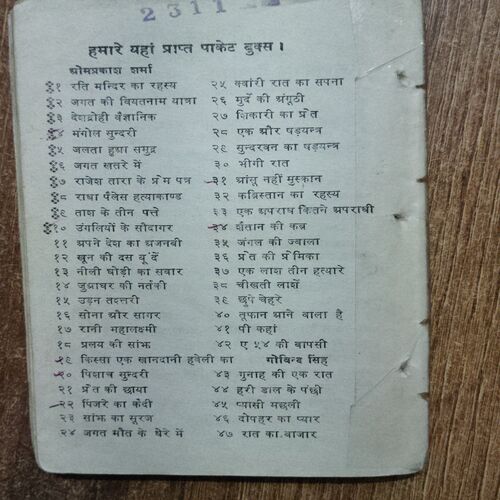 2311
हमारे यहां प्राप्त पाकेट बुक्स ।
ओमप्रकाश शर्मा
१ रति मन्दिर का रहस्य
२ जगत की वियतनाम यात्रा
३ देशद्रोही वैज्ञानिक
४ मंगोल सुन्दरी
५ जलता हुआ समुद्र
६ जगत खतरे में
७ राजेश तारा के प्रेम पत्र
८ राधा पैलेस हत्याकाण्ड
९ ताश के तीन पत्ते
१० उंगलियों के सौदागर
११ अपने देश का अजनबी
१२ खून की दस बूंदें
१३ नीली घोड़ी का सवार
१४ जुआघर की नर्तकी
१५ उड़न तश्तरी
१६ सोना और सागर
१७ रानी महालक्ष्मी
१८ प्रलय की सांझ
१९ किस्सा एक खानदानी हवेली का
२० पिशाच सुन्दरी
२१ प्रेत की छाया
२२ पिंजरे का कैदी
२३ सांझ का सूरज
२४ जगत मौत के घेरे में
२५ क्वांरी रात का सपना
२६ मुर्दे की अंगूठी
२७ शिकारी का प्रेत
२८ एक और षड़यन्त्र
२९ सुन्दरवन का षड़यन्त्र
३० भीगी रात
३१ आंसू नहीं मुस्कान
३२ कब्रिस्तान का रहस्य
३३ एक अपराध कितने अपराधी
३४ शैतान की कब्र
३५ जंगल की ज्वाला
३६ प्रेत की प्रेमिका
३७ एक लाश तीन हत्यारे
३८ चीखती लाशें
३९ छुपे चेहरे
४० तूफान आने वाला है
४१ पी कहां
४२ ए ५४ की वापसी
गोबिन्द सिंह
४३ गुनाह की एक रात
४४ हरी डाल के पंछी
४५ प्यासी मछली
४६ दोपहर का प्यार
४७ रात का बाजार